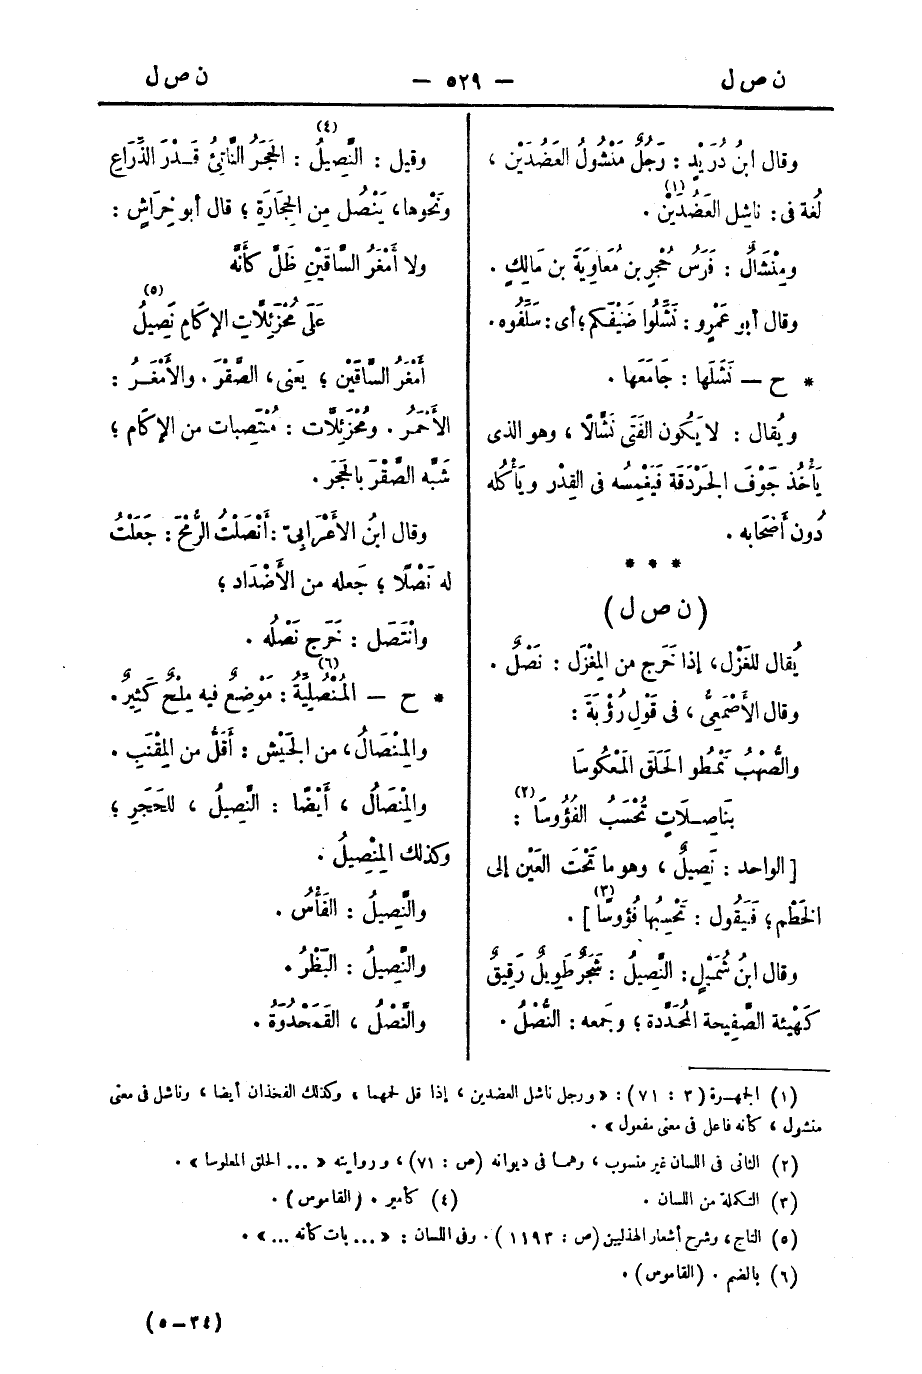 ن ص ل — ٥٢٩ — ن ص ل
وقال ابنُ دُرَيْدٍ : رَجُلٌ مَنْشُولُ العَضُدَيْن ،
لُغة فى : ناشِلِ العَضُدَيْن (١) .
ومِنْشَالٌ : فَرَسُ حُجْرِ بن مُعَاوِيَةَ بن مَالِكٍ .
وقال أبو عَمْرٍو : نَشِّلُوا ضَيْفَكم ؛ أى : سَلِّفُوه .
* ح — نَشَلَها : جَامَعَها .
ويُقال : لا يَكُون الفَتَى نَشَّالًا ، وهو الذى
يَأْخُذ جَوْفَ الجَرْدَقَة فَيَغْمِسُه فى القِدْر ويَأْكُله
دُون أَصْحَابه .
* * *
( ن ص ل )
يُقال للغَزْل، إذا خَرَج من المِغْزَل : نَصْلٌ .
وقال الأَصْمَعِىُّ ، فى قَوْلِ رُؤْبَةَ :
والصُّهْبُ تَمْطُو الحَلَقَ المَعْكُوسَا
بنَاصِلَاتٍ تُحْسَبُ الفُؤُوسَا (٢) :
[ الواحد : نَصِيلٌ ، وهو ما تَحْتَ العَيْن إلى
الخَطْم ؛ فَيَقُول : تَحْسِبُها فُؤُوسًا (٣) ] .
وقال ابنُ شُمَيْلٍ : النَّصِيلُ : شَجَرٌ طَوِيلٌ رَقِيقٌ
كهَيْئة الصَّفِيحة المُحَدَّدة ؛ وجَمعه : النُّصْلُ .
وقيل : النَّصِيلُ (٤) : الحَجَرُ النَّاتِئُ قَدْرَ الذِّرَاعِ
ونَحْوها، يَنْصُل مِن الحِجَارَةِ ؛ قال أبو خِرَاشٍ :
ولا أَمْغَرُ السَّاقَيْنِ ظَلَّ كأنَّه
عَلَى مُحْزَئِلَّاتِ الإكامِ نَصِيلُ (٥)
أَمْغَرُ السَّاقَيْن ؛ يَعنى، الصَّقْرَ . والأَمْغَرُ :
الأَحْمَرُ . ومُحْزَئِلَّات : مُنْتَصِبات من الإكَام ؛
شَبَّه الصَّقْرَ بالحَجَرِ .
وقال ابنُ الأَعْرَابِىّ : أَنْصَلْتُ الرُّمْحَ : جَعَلْتُ
له نَصْلًا ؛ جَعله من الأَضْدَاد ؛
وانْتَصَل : خَرَج نَصْلُه .
* ح — المُنْصُلِيَّةُ (٦) : مَوْضِعٌ فيه مِلْحٌ كَثِيرٌ .
والمِنْصَالُ ، من الجَيْش : أَقَلُّ من المِقْنَبِ .
والمِنْصَالُ ، أَيْضًا : النَّصِيلُ ، للحَجَرِ ؛
وكذلك المِنْصِيلُ .
والنَّصِيلُ : الفَأْسُ .
والنَّصِيلُ : البَظْرُ .
والنَّصْلُ ، القَمَحْدُوَةُ .
(١) الجمهرة (٣ : ٧١) : « ورجل ناشل العضدين ، إذا قل لحمهما ، وكذلك الفخذان أيضا ، وناشل فى معنى
منشول ، كأنه فاعل فى معنى مفعول » .
(٢) الثانى فى اللسان غير منسوب ، وهما فى ديوانه (ص : ٧١) ، وروايته « ... الحلق المعلوسا » .
(٣) التكملة من اللسان . (٤) كأمير . (القاموس) .
(٥) التاج ، وشرح أشعار الهذليين (ص : ١١٩٣) . وفى اللسان : « ... بات كأنه ... » .
(٦) بالضم . (القاموس) .
(٣٤ – ٥)